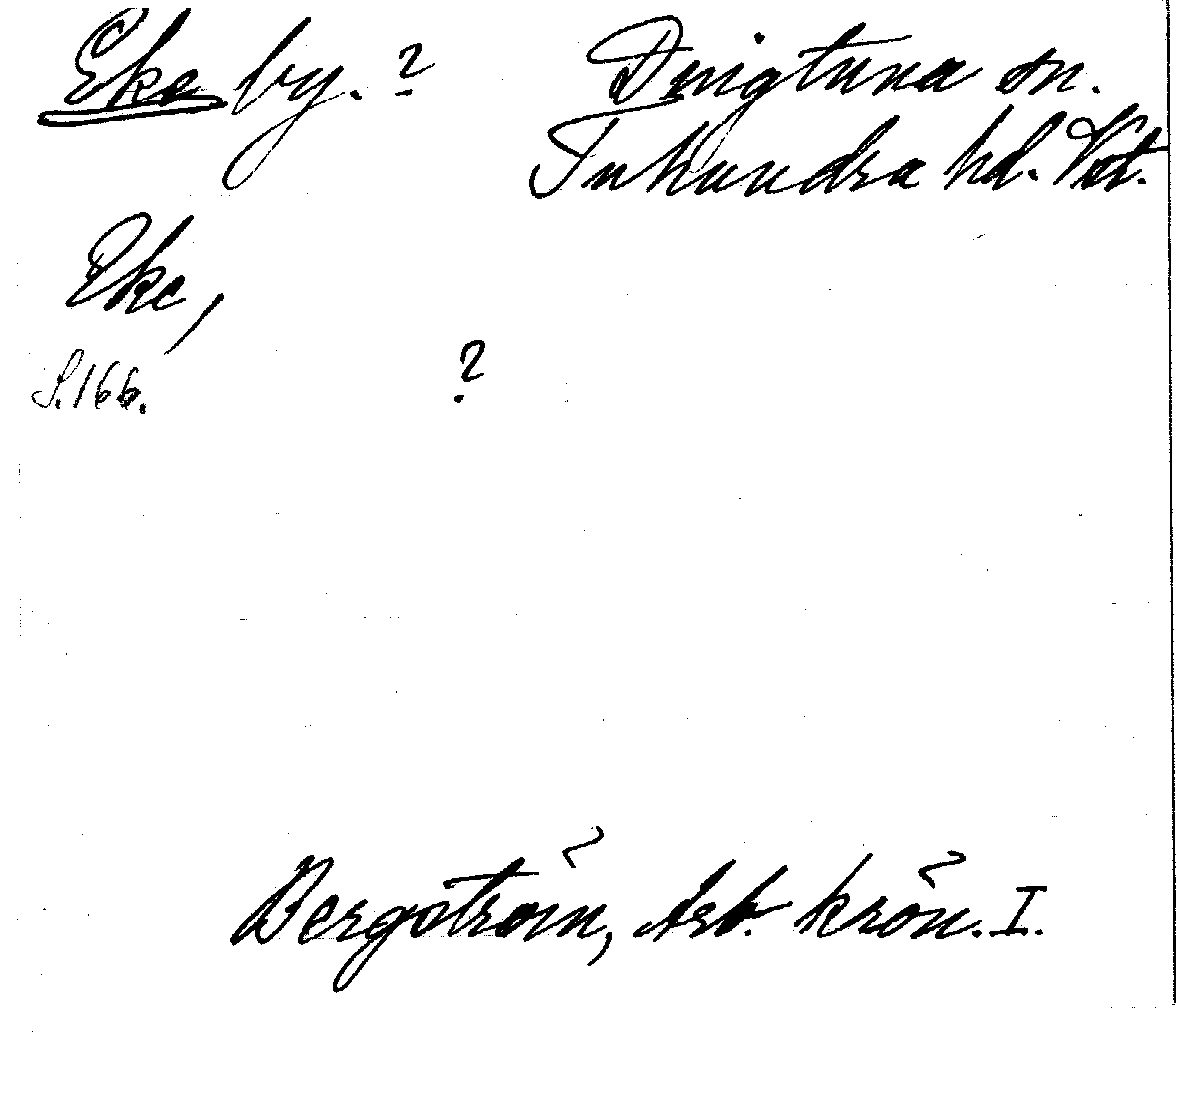 Eke by. ? Dingtuna sn.
Tuhundra hd. Vst.
Eke,
S. 166. ?
Bergström, Arb. krön. I.